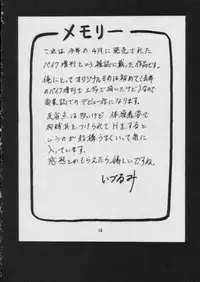 メモリー
これは今年の4月に発売された
バイク増刊という雑誌に載った作品です。
俺にとってオリジナルものは初めて(去年
のバイク増刊で上野で描いたけど)なので
商業誌でのデビュー作になります。
反省点は多いけど、体操着姿で
をつけられてHをする
というのが結構うまくいって気に
入っています。
感想とかもらえたら嬉しいですね。
いづるみ